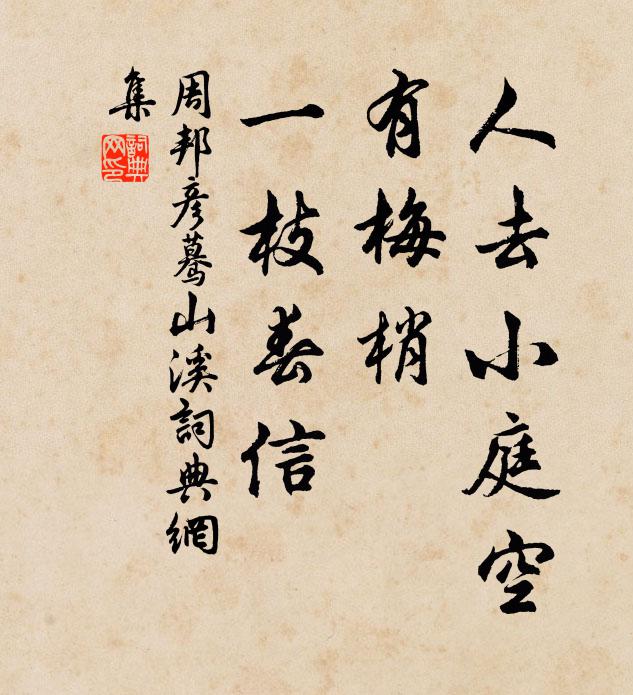 人去小庭空
有梅梢
一枝春信
周邦彦驀山溪詞典網
集
詞典
网印